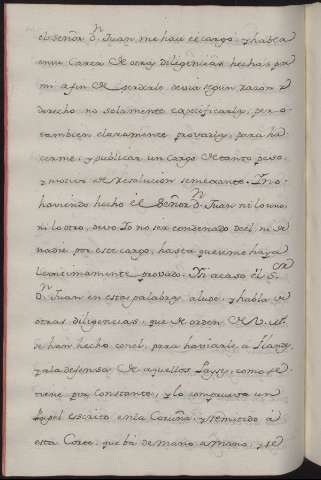 el señor Dn. Juan, me hace ese cargo, y habla
en su Carta de otras diligencias hechas por
mi a fin de perderle devia segun razon y
derecho no solamente especificarlas, pero
tambien claramente provarlas, para ha
cerme, y publicar un cargo de tanto peso,
y motivo de resolucion semejante. Y no
haviendo hecho el Señor Dn. Juan ni lo uno,
ni lo otro, devo Yo no ser condenado de el, ni de
nadie por este cargo, hasta que se me haya
lexitimamente provado. Si acaso el Sr.
Dn. Juan en estas palabras alude, y habla de
otras diligencias, que de orden de V. Mt.
se han hecho con el, para embiarle a Flandes,
y a la defensa de aquellos Payses, como se
tiene por constante, y lo comprueva un
Papel escrito en la Coruña, y remitido á
esta Corte, que bá de mano a mano, y se